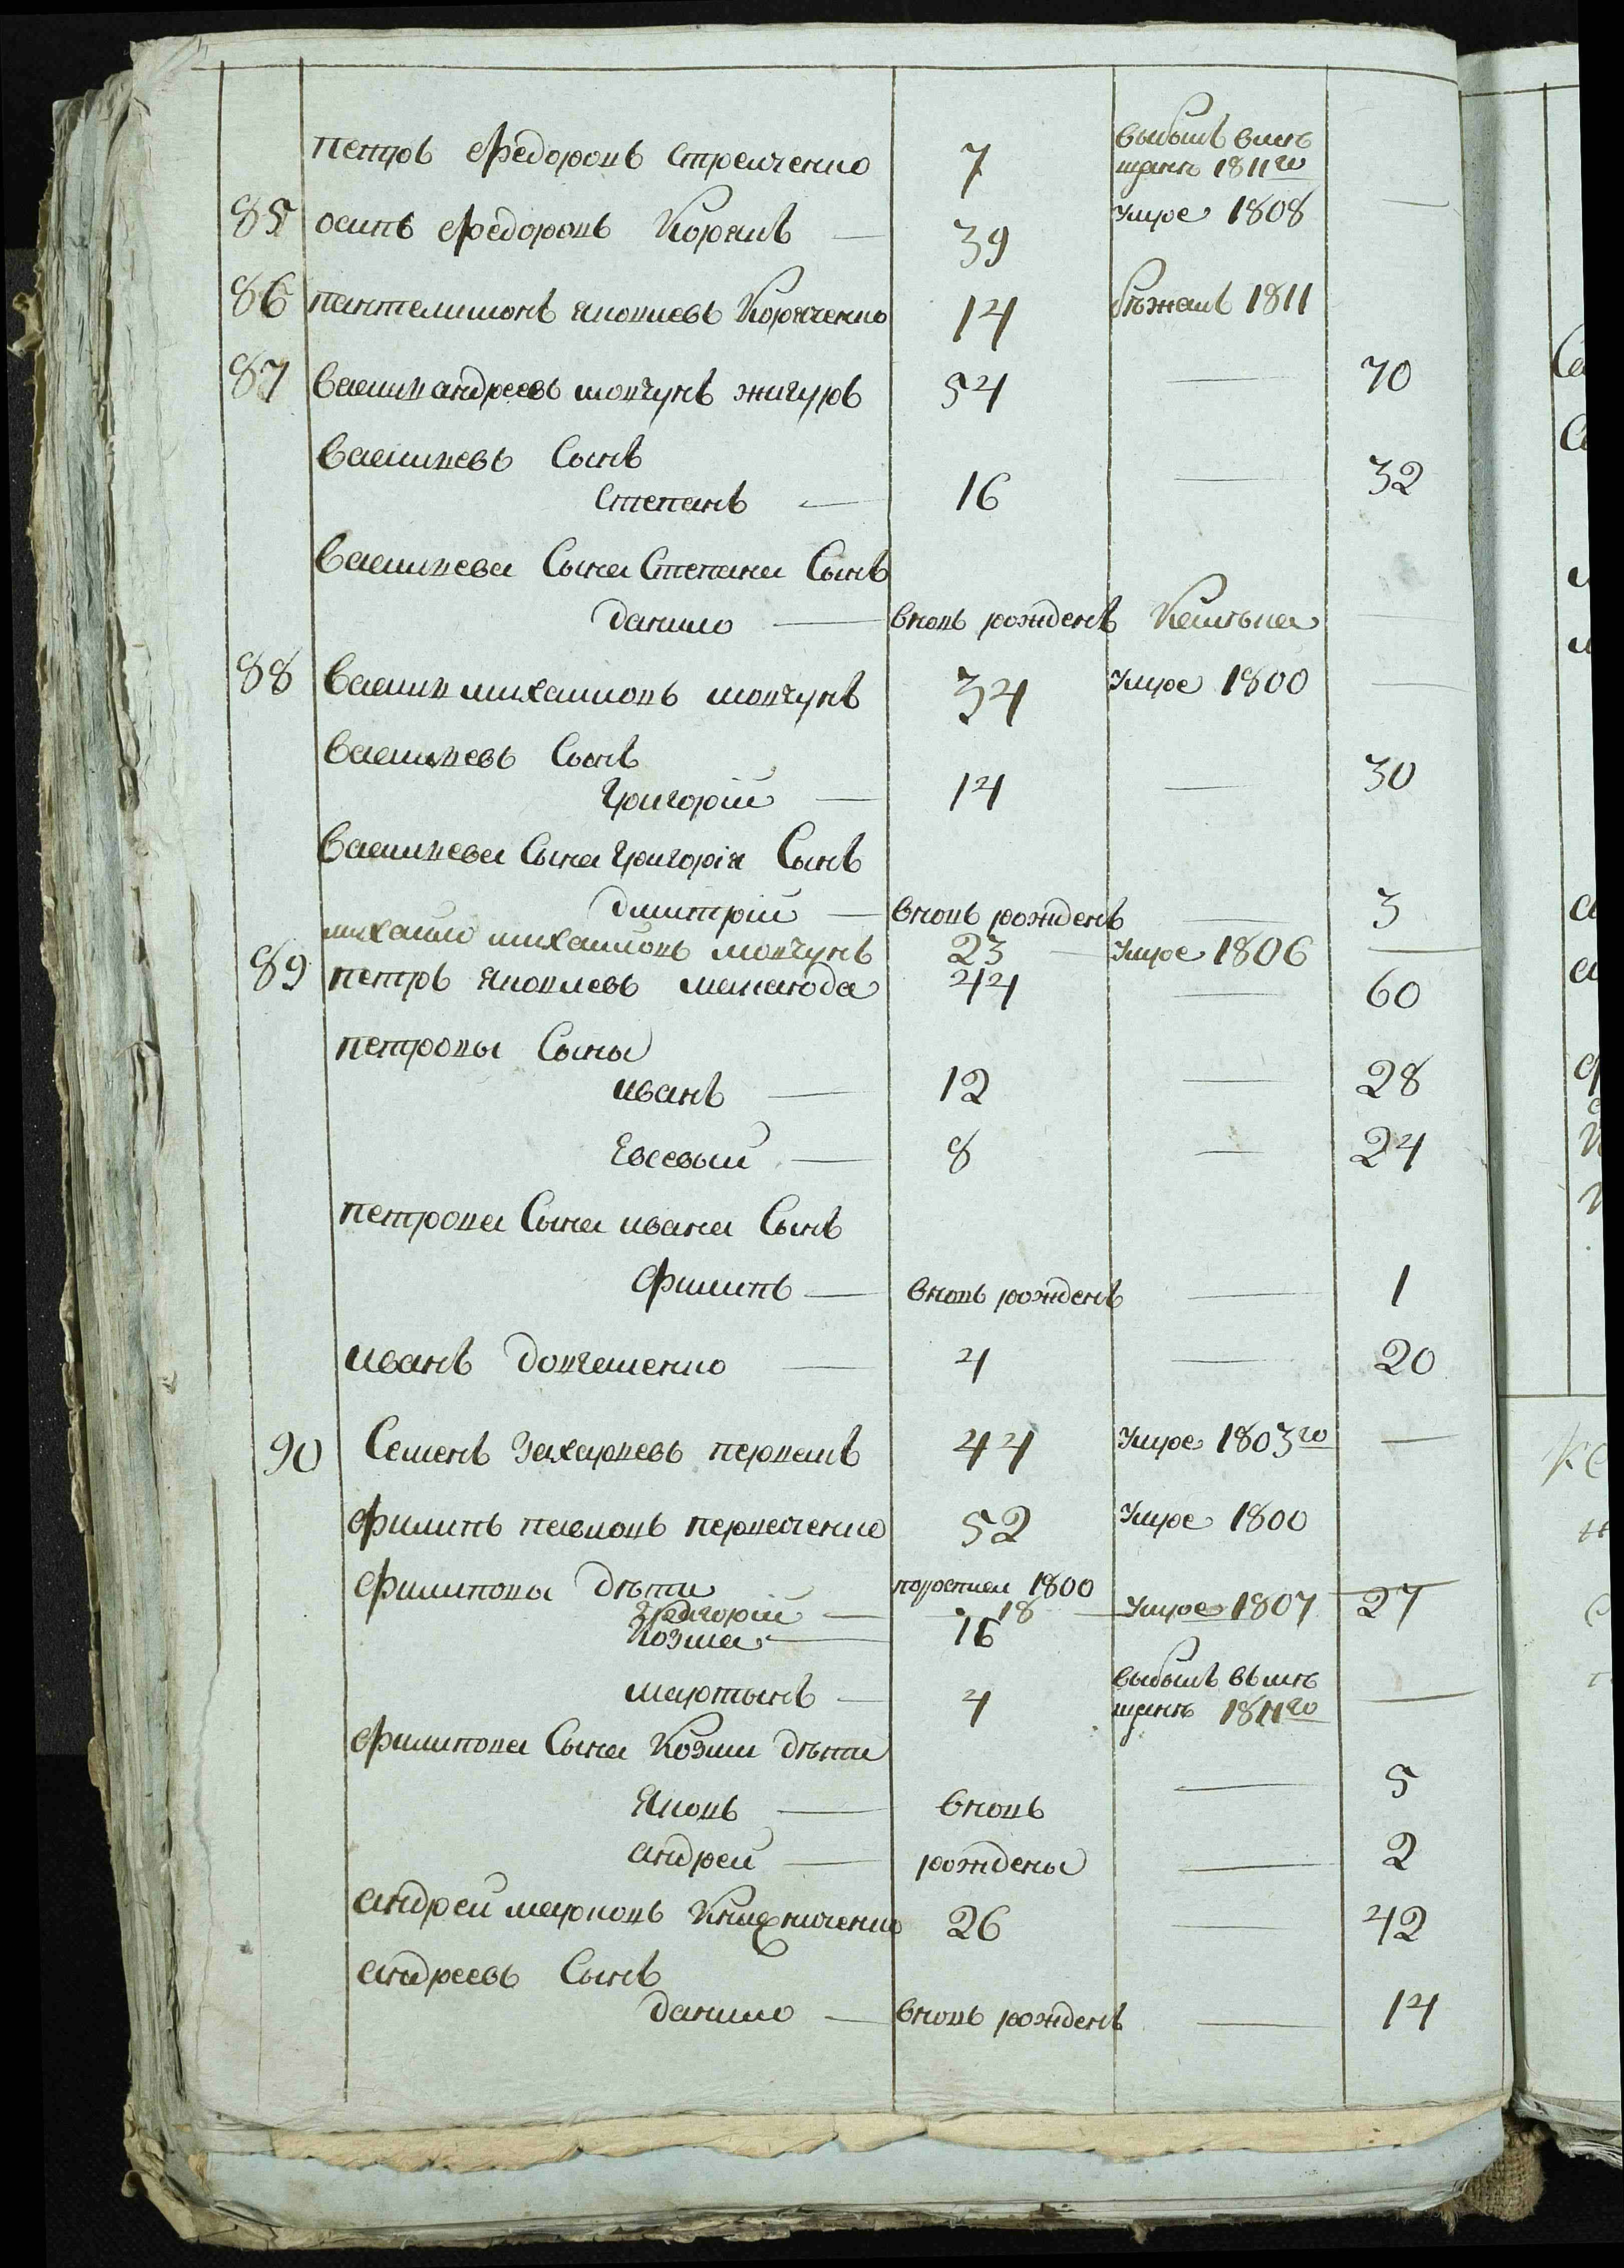 петръ Федоровъ стрельченко 7 выбылъ вмѣ
щане 1811го
85 осипъ Федоровъ Коржъ — 39 умре 1808 —
86 пантелимонъ яковлевъ 14 бѣжалъ 1811
87 василей андреевъ мовчунъ жигуръ 54 — 70
василиевъ Сынъ
Степанъ — 16 — 32
василиева Сына Степана Сынъ
данило — вновь рожденъ —
88 василей михаиловъ мовчунъ 34 умре 1800 —
василиевъ Сынъ
Григорій — 14 — 30
василиева Сына Григорія Сынъ
дмитрій — вновь рожденъ — 3
михаило михаиловъ мовчунъ 23 — умре 1806 —
89 петръ яковлевъ 44 — 60
петровы Сыны
иванъ — 12 — 28
Евсевый — 8 — 24
петрова Сына ивана Сынъ
Филипъ — вновь рожденъ — 1
иванъ 4 — 20
90 Семенъ Захарьевъ 44 умре 1803го —
Филипъ павловъ 52 умре 1800
Филиповы дѣти 1800
Григорій — 18 — умре 1807
Козма — 16 27
мартынъ — 4 выбылъ вмѣ
щане 1811го —
Филипова Сына Козми дѣти
Яковъ — вновь — 5
андрей — рождены — 2
андрей марковъ 26 — 42
андреевъ Сынъ
данило — вновь рожденъ — 14